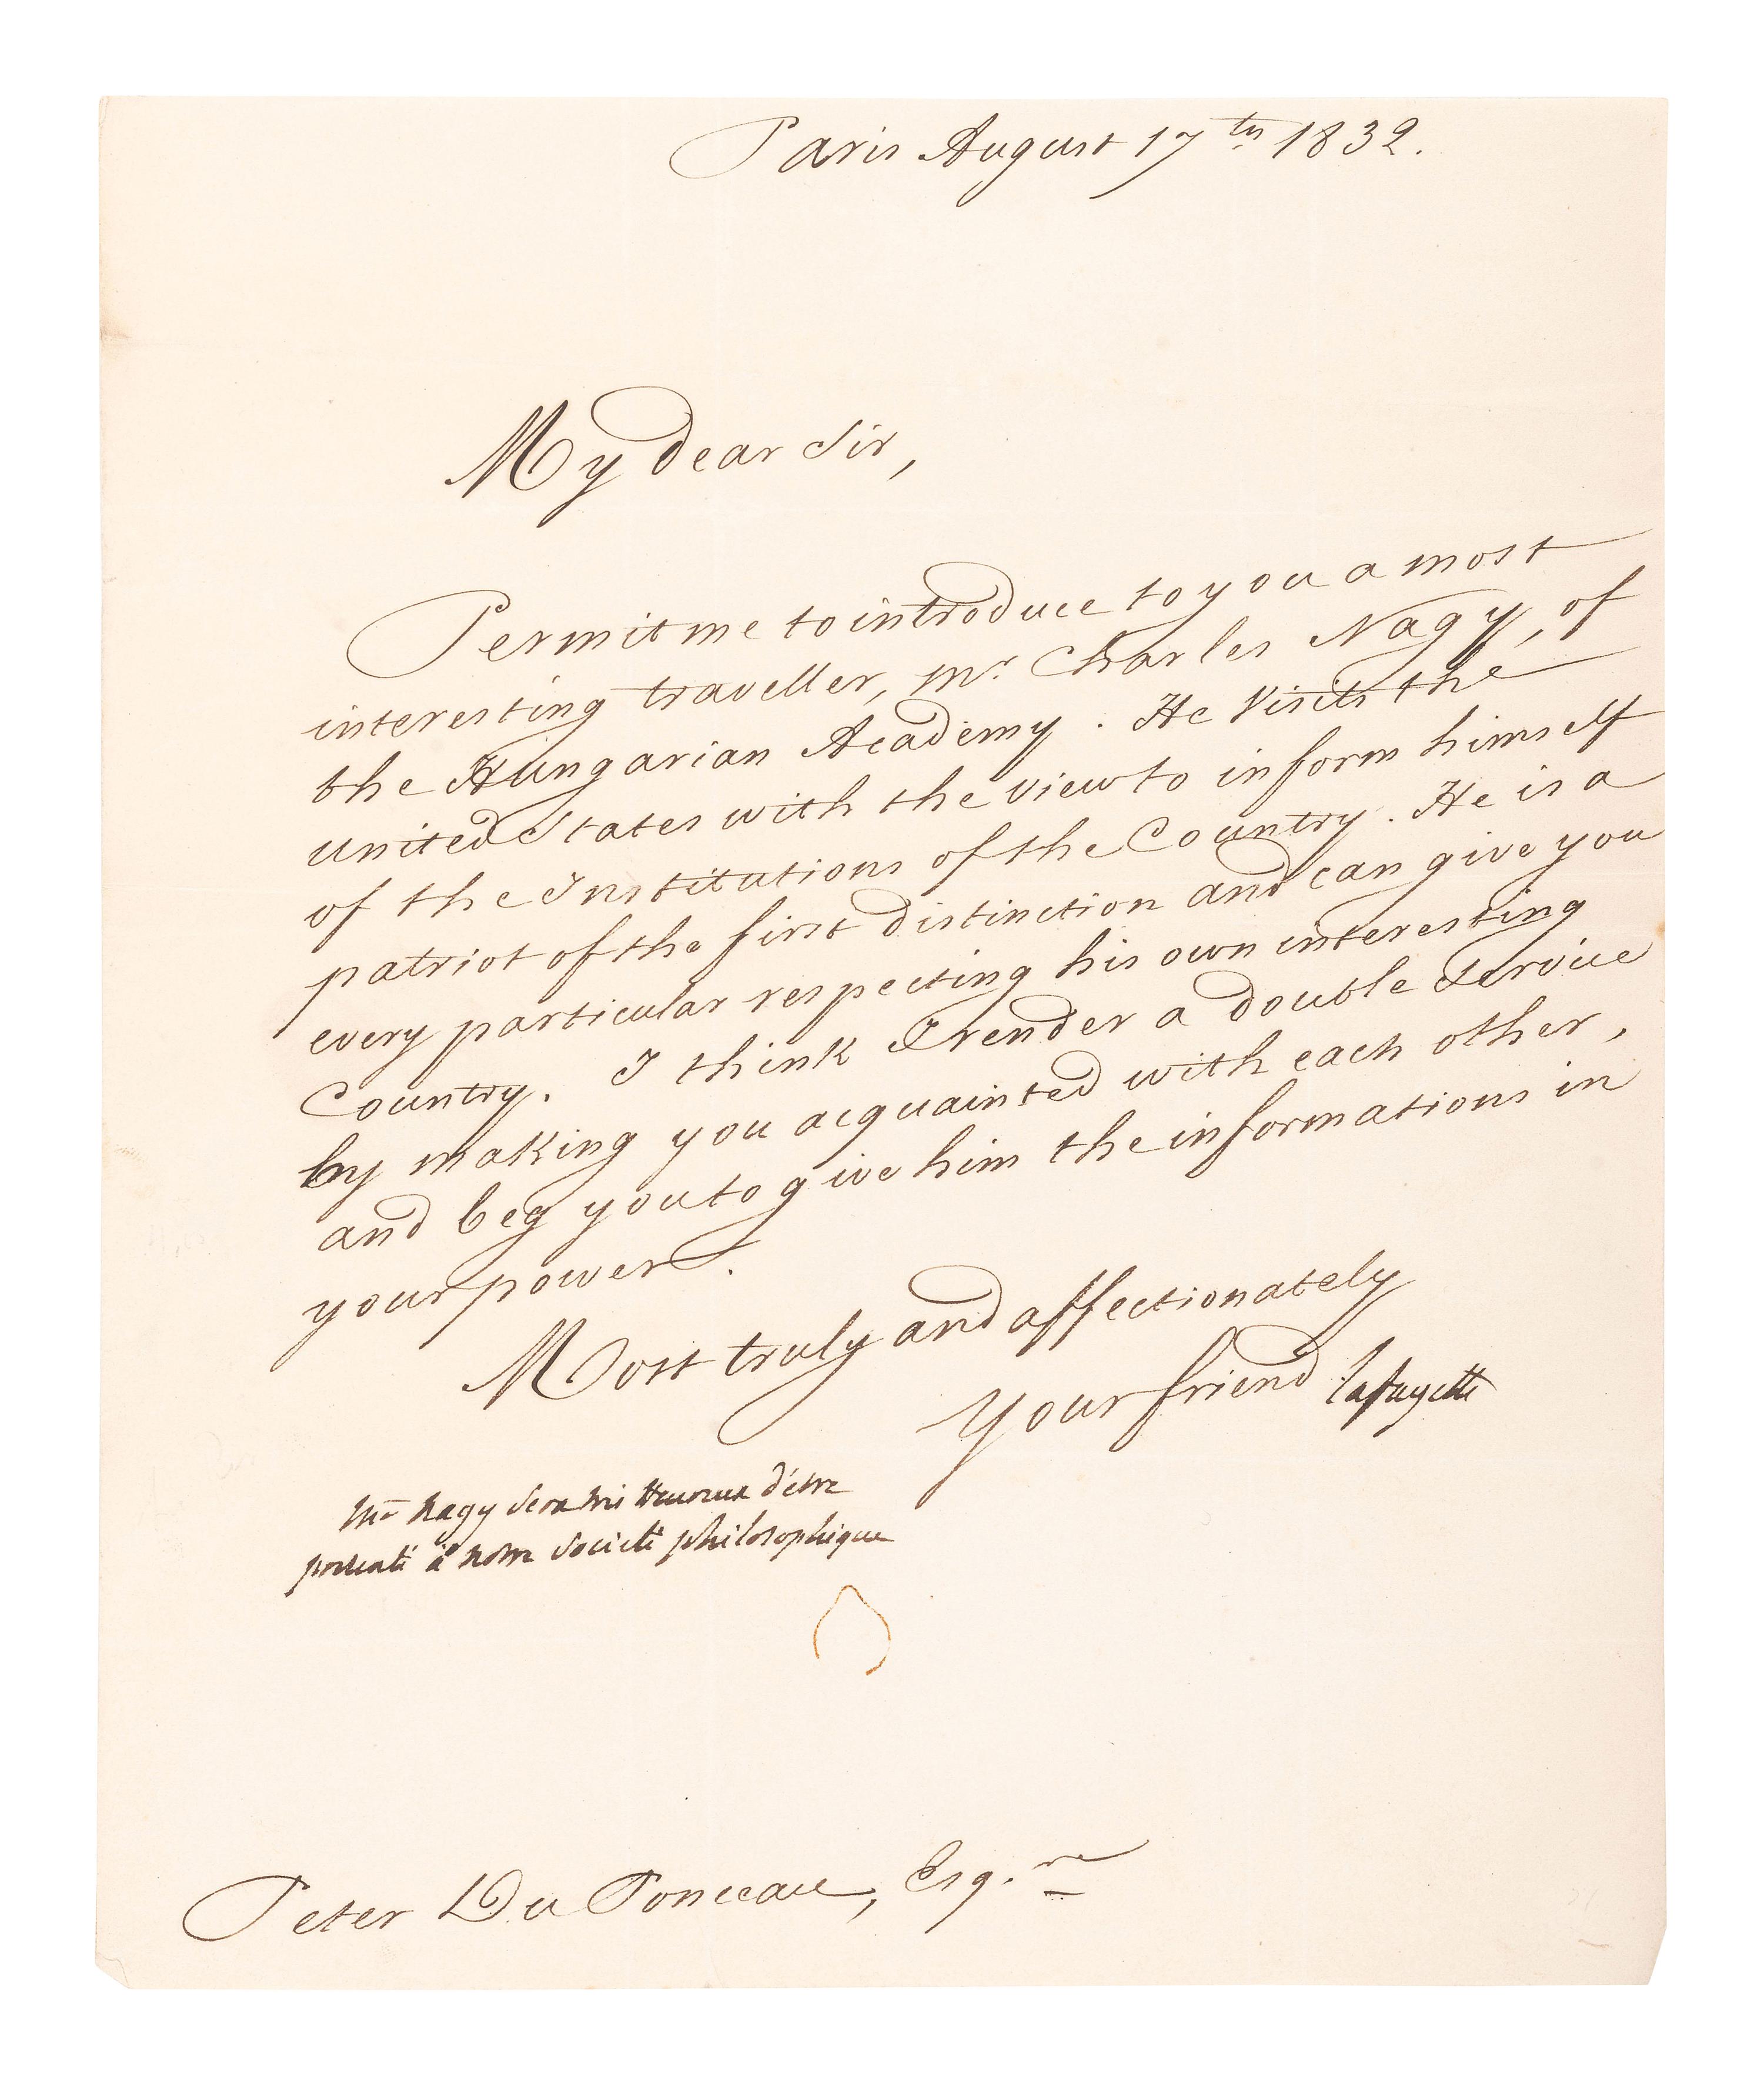 Paris August 17th 1832.
My dear Sir,
Permit me to introduce to you a most
interesting traveller, Mr. Charles Nagy, of
the Hungarian Academy. He Visits the
united States with the view to inform himself
of the Institutions of the Country. He is a
patriot of the first distinction and can give you
every particular respecting his own interesting
Country. I think I render a double Service
by making you acquainted with each other,
and beg you to give him the informations in
your power.
Most truly and affectionately
Your friend Lafayette
Mr Nagy sera très heureux d'être
présenté à notre société philosophique
Peter Du Ponceau, Esq.re